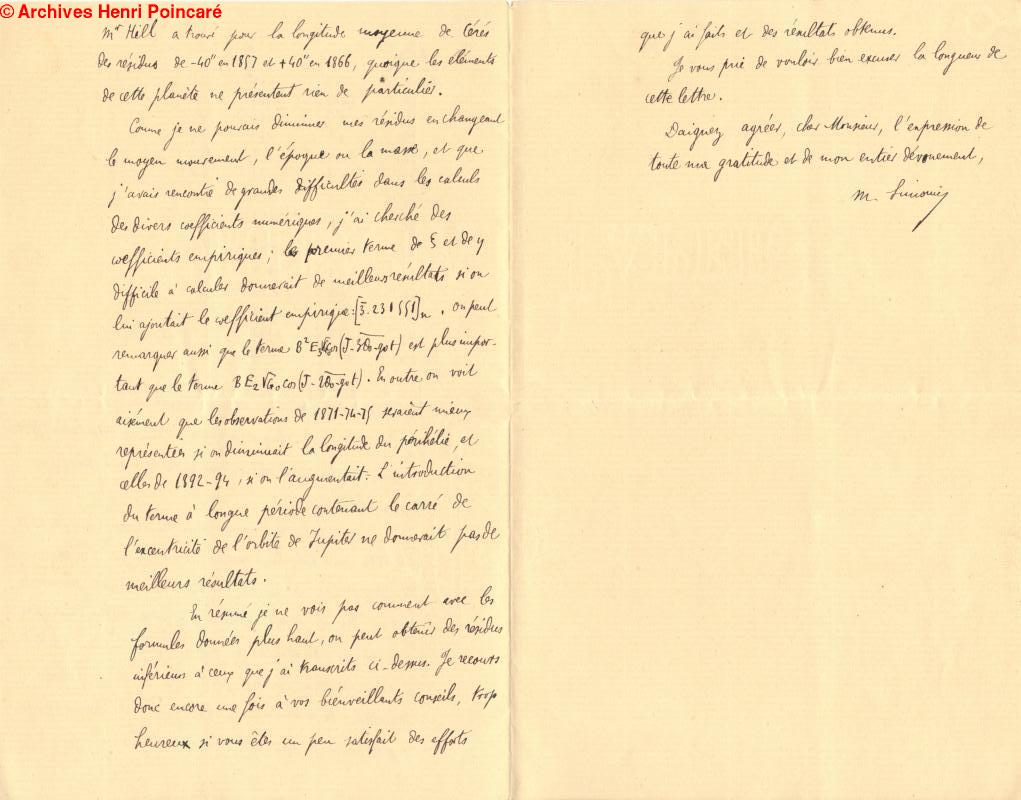 © Archives Henri Poincaré
Mr Hill a trouvé pour la longitude moyenne de Cérès
des résidus de -40" en 1857 et +40" en 1866, quoique les éléments
de cette planète ne présentent rien de particulier.
Comme je ne pouvais diminuer mes résidus en changeant
le moyen mouvement, l'époque ou la masse, et que
j'avais rencontré de grandes difficultés dans les calculs
des divers coefficients numériques, j'ai cherché des
coefficients empiriques; le premier terme de ξ et de η
difficile à calculer donnerait de meilleurs résultats si on
lui ajoutait le coefficient empirique: [3̅.231551]n. On peut
remarquer aussi que le terme cos(J-3ϖ0-g0t) est plus impor-
tant que le terme B E2 √G0 cos(J-2ϖ0-g0t). En outre on voit
aisément que les observations de 1871-74-75 seraient mieux
représentées si on diminuait la longitude du périhélie, et
celles de 1892-94, si on l'augmentait. L'introduction
du terme à longue période contenant le carré de
l'excentricité de l'orbite de Jupiter ne donnerait pas de
meilleurs résultats.
En résumé je ne vois pas comment avec les
formules données plus haut, on peut obtenir des résidus
inférieurs à ceux que j'ai transcrits ci-dessus. Je recours
donc encore une fois à vos bienveillants conseils, trop
heureux si vous êtes un peu satisfait des efforts
que j'ai faits et des résultats obtenus.
Je vous prie de vouloir bien excuser la longueur de
cette lettre.
Daignez agréer, cher Monsieur, l'expression de
toute ma gratitude et de mon entier dévouement,
M. Simonin